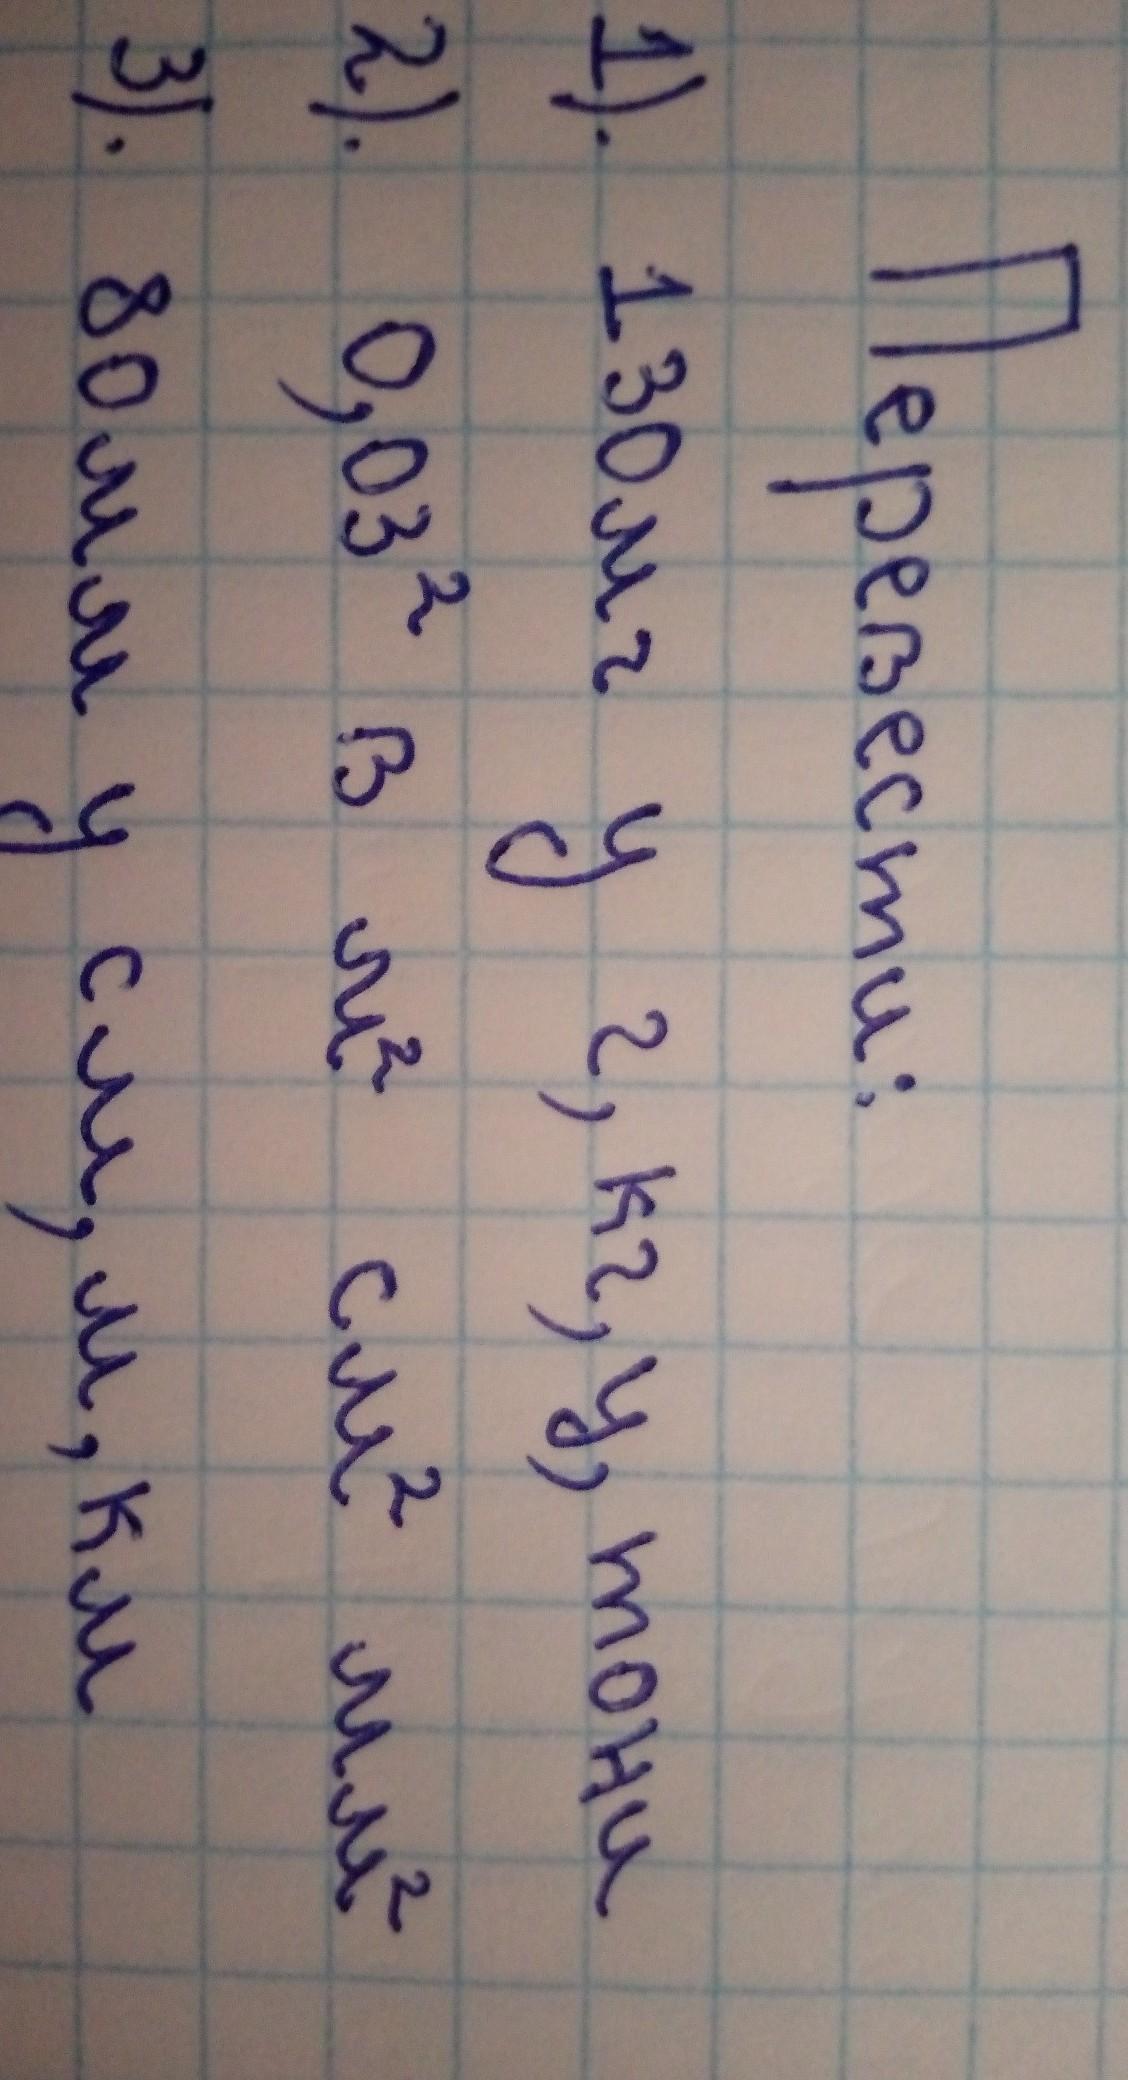 Перевести:
1). 130мг у г, кг, ц, тони
2). 0,03² в м² см² мм²
3). 80мм у см, м, км